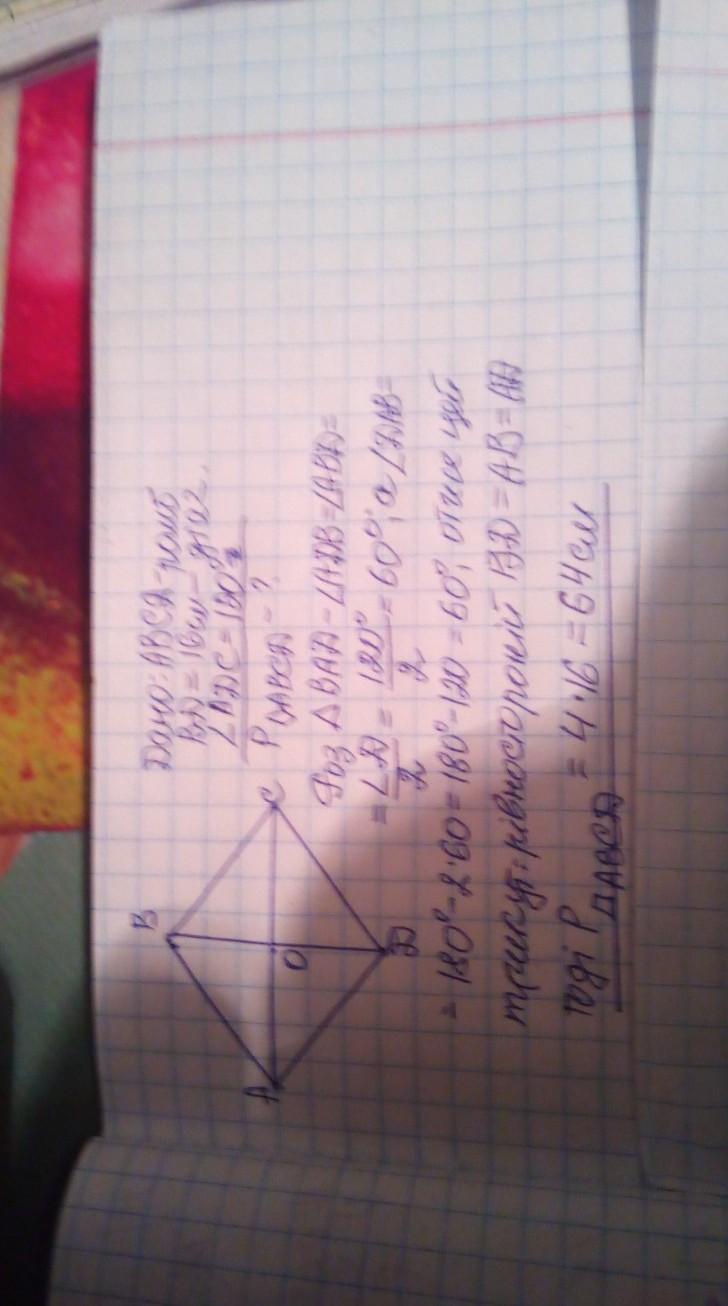 Дано: ABCD - ромб
BD = 16 см - діаг.
∠ADC = 120°
P ABCD - ?
B
A
O
C
D
Роз ΔBAD - ∠ADB = ∠ABD =
= ∠D/2 = 120°/2 = 60°, а ∠DAB =
= 180° - 2·60 = 180° - 120 = 60°, отже цей
трикут. рівносторонній BD = AB = AD
тоді P ABCD = 4·16 = 64 см